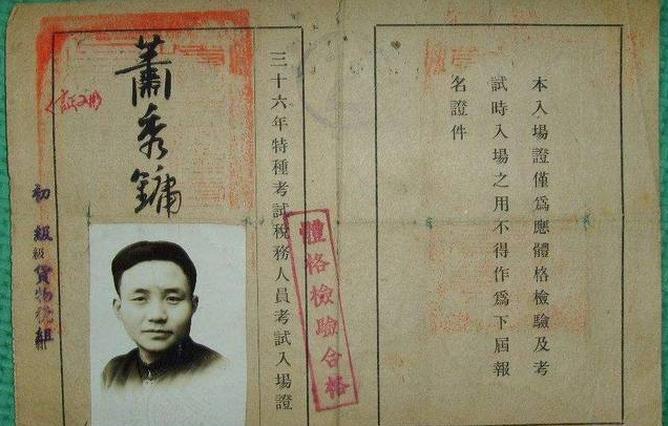 本入場證僅爲應體格檢驗及考
試時入場之用不得作爲下屆報
名證件
三十六年特種考試稅務人員考試入場證
體格檢驗合格
蕭秀鏞
初級貨物稅組
級